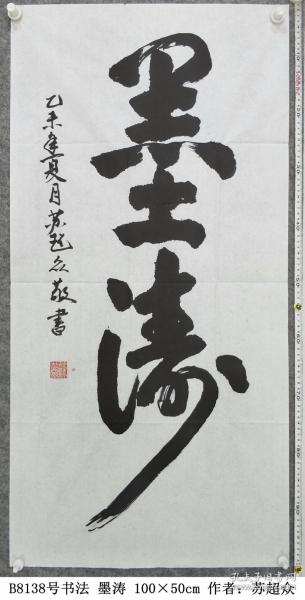 墨涛
乙未年夏月苏超众敬书
B8138号书法 墨涛 100×50cm 作者：苏超众